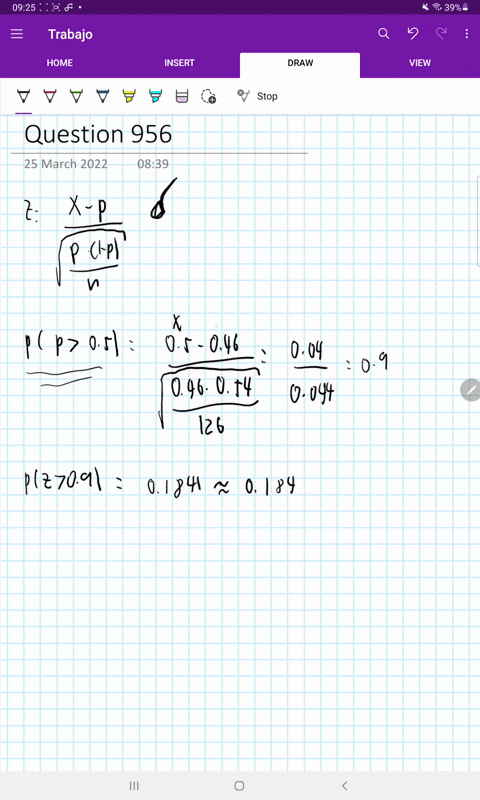 09:25
39%
Trabajo
HOME INSERT DRAW VIEW
Stop
Question 956
25 March 2022 08:39
z: X - p
p · (1-p)
n
p( p > 0.5) = 0.5 - 0.46 = 0.04 = 0.9
x
0.46 · 0.54 0.044
126
p(z > 0.9) = 0.1841 ≈ 0.184